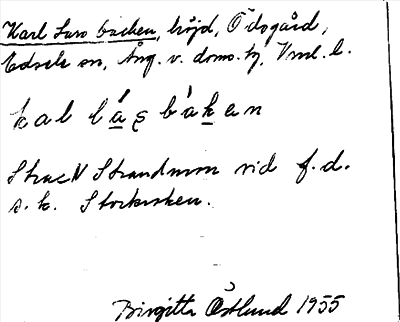 Karl Lars backen, höjd, Ödsgård,
Edsele sn, Ång. v. doms. tg, Vnl. l.
kal låsbaken
Strax N Strandmon vid f.d.
s.k. Storkroken.
Birgitta Östlund 1955